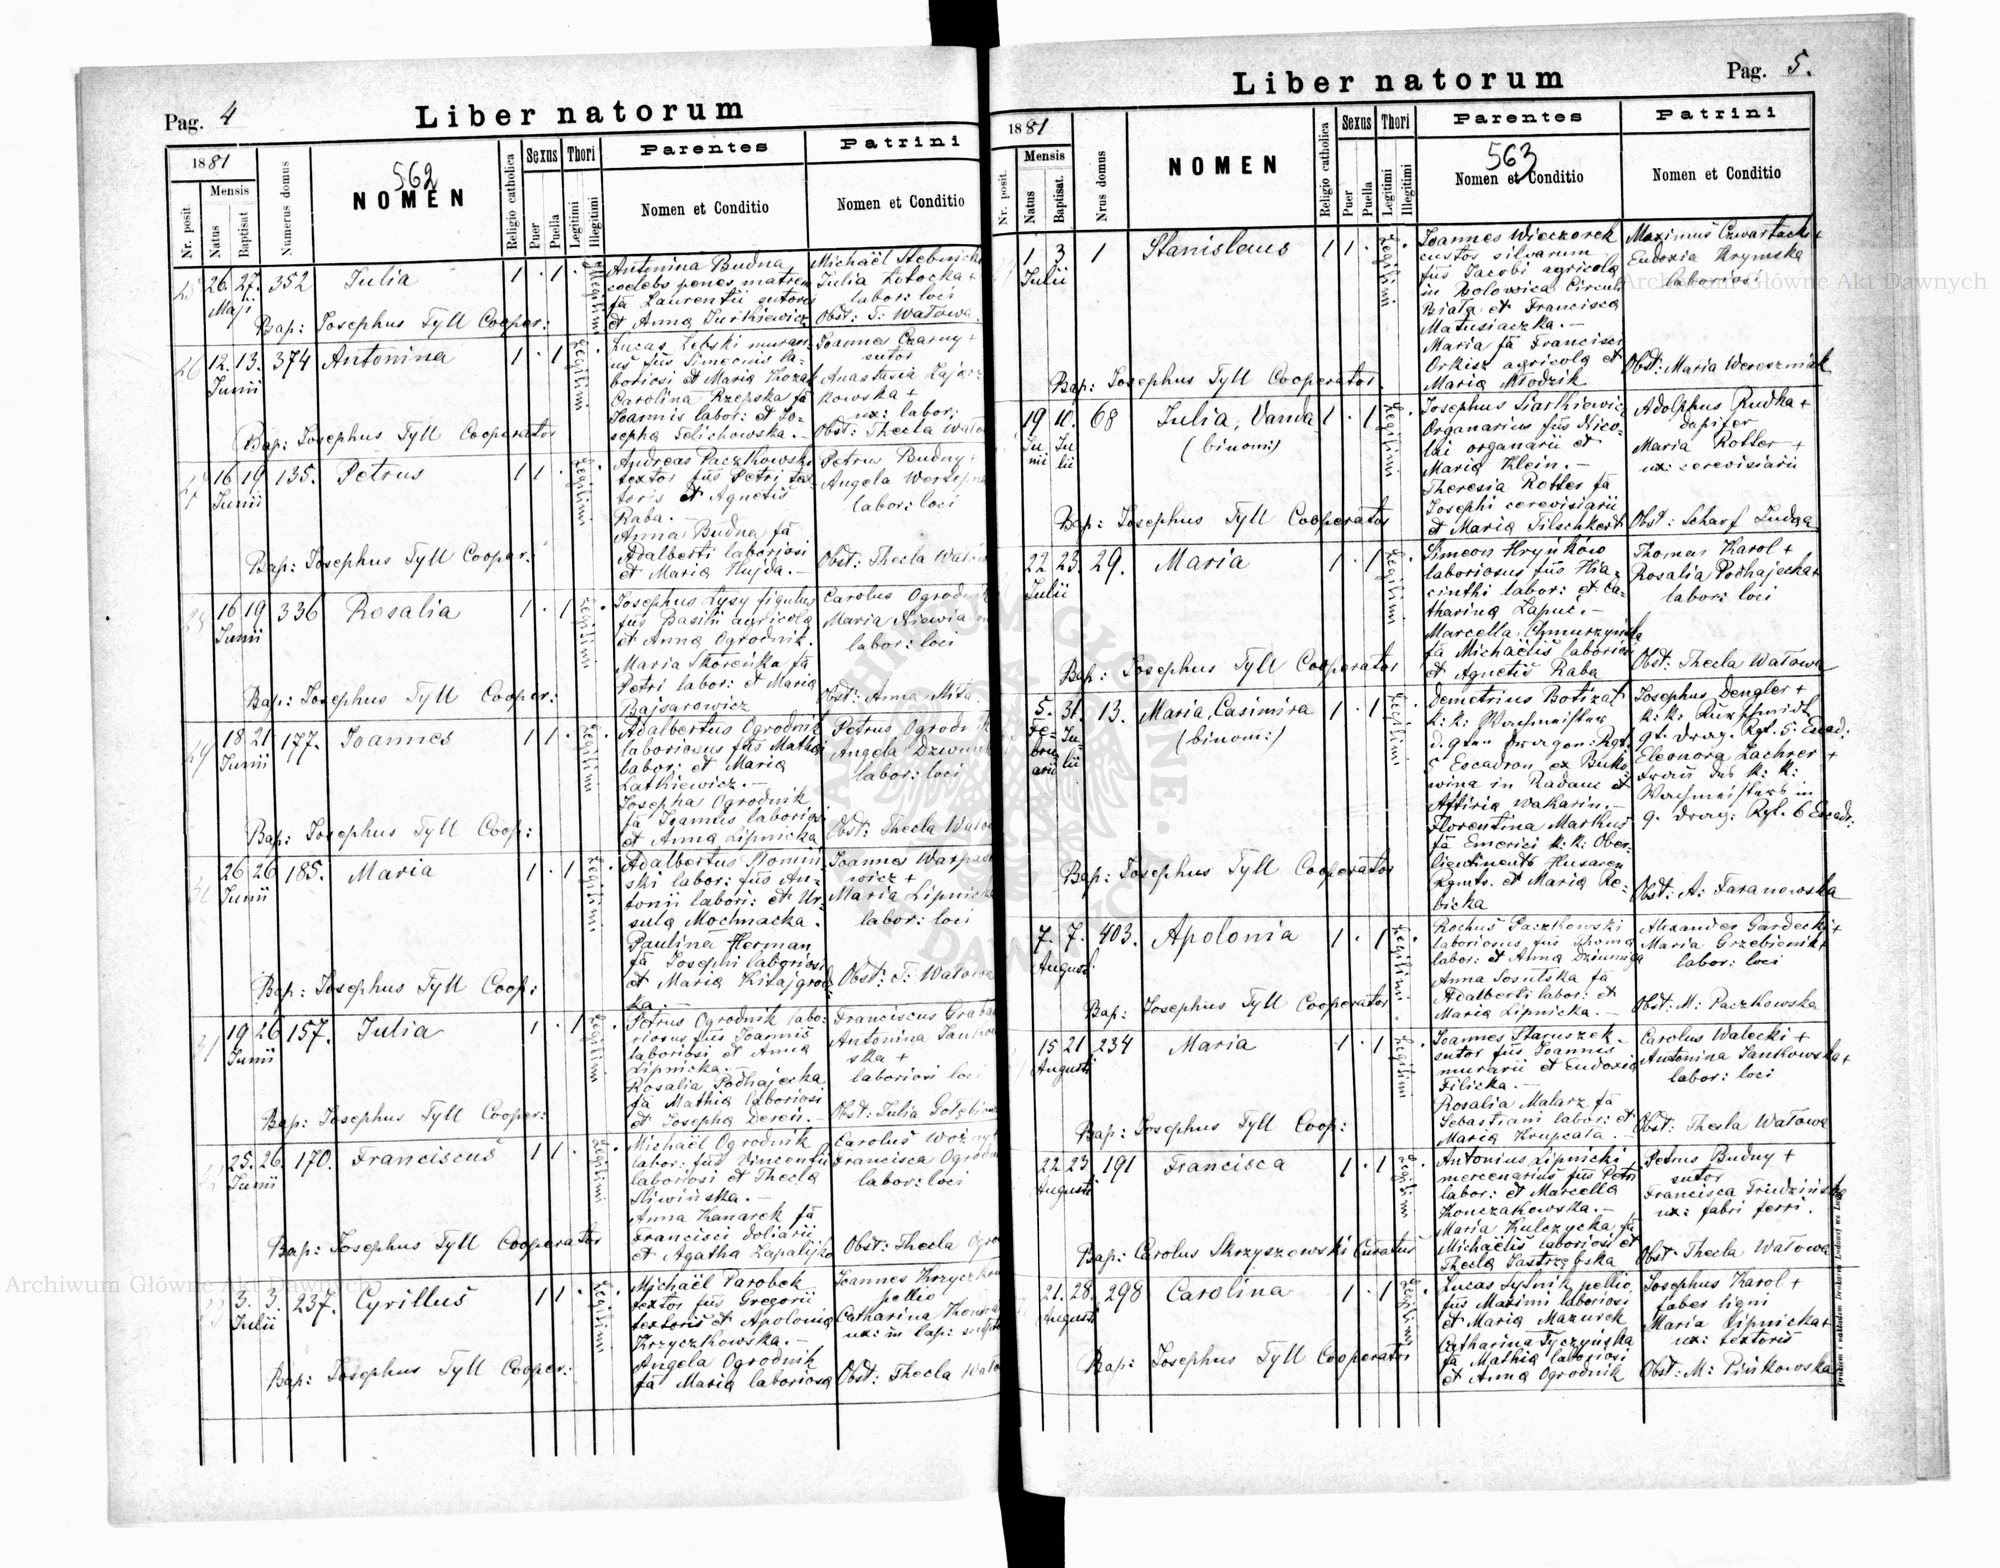 Pag. 4
Liber natorum
1881
Nr. posit.
Mensis
Natus
Baptisat
Numerus domus
562
NOMEN
Religio catholica
Sexus
Puer
Puella
Thori
Legitimi
Illegitimi
Parentes
Nomen et Conditio
Patrini
Nomen et Conditio
26. 27. 352 Julia 1 · 1 · Illegitimi
Maji
Antonina Budna
coelebs penes matrem
fa Laurentii sutoris
et Anna Jurkiewicz
Michaël Stebnicki
Julia Zotocka +
labor: loci
Obst: T: Watowa
Bap: Josephus Tyll Cooper:
26 12. 13. 374 Antonina 1 · 1 Legitimi
Junii
Lucas Zebski murari-
us fus Simeonis la-
boriosi et Maria Kozak
Carolina Rzepska fa
Joannis labor: et Jo-
sepha Telichowska. —
Joannes Czarny +
sutor
Anastasia Zajacz
kowska +
ux: labor:
Obst: Thecla Watow
Bap: Josephus Tyll Cooperator
27 16 19 135. Petrus 1 1 · Legitimi
Junii
Andreas Paczkowski
textor fus Petri tex-
toris et Agnetis
Raba.
Anna Budna fa
Adalberti laboriosi
et Maria Hujda. —
Petrus Budny +
Angela
labor: loci
Obst: Thecla Watow
Bap: Josephus Tyll Cooper:
28 16 19 336 Rosalia 1 · 1 Legitimi
Junii
Josephus Lysy figulus
fus Basilii agricola
et Anna Ogrodnik.
Maria Skoreńka fa
Petri labor: et Maria
Bajsarowicz
Carolus Ogrodnik
Maria
labor: loci
Obst: Anna Mita
Bap: Josephus Tyll Cooper:
29 18 21 177. Joannes 1 1 · Legitimi
Junii
Adalbertus Ogrodnik
laboriosus fus Mathei
labor: et Maria
Latkiewicz. —
Josepha Ogrodnik
fa Joannis laboriosi
et Anna Lipnicka
Petrus Ogrodnik
Angela
labor: loci
Obst: Thecla Watow
Bap: Josephus Tyll Coop:
26 26 185. Maria 1 · 1 Legitimi
Junii
Adalbertus Slomin
ski labor: fus An-
tonii labori: et Ur-
sula Mochnacka.
Paulina Herman
fa Josephi laboriosi
et Maria Kitajgrod
ka. —
Joannes
wicz +
Maria Lipnicka
labor: loci
Obst: T: Watowa
Bap: Josephus Tyll Coop:
31 19 26 157. Julia 1 · 1 Legitimi
Junii
Petrus Ogrodnik labo-
riosus fus Joannis
laboriosi et Anna
Lipnicka. —
Rosalia Podhajecka
fa Mathia laboriosi
et Josepha Dereń. —
Franciscus
Antonina
ska +
laboriosi loci
Obst: Julia
Bap: Josephus Tyll Cooper:
25. 26. 170. Franciscus 1 1 · Legitimi
Junii
Michaël Ogrodnik
labor: fus Vincentii
laboriosi et Thecla
Sliwińska. —
Anna Kanarek fa
Francisci doliarii
et Agatha Zapalijko
Carolus Woźny
Francisca Ogrodn
labor: loci
Obst: Thecla
Bap: Josephus Tyll Cooperator
3. 3. 237. Cyrillus 1 1 · Legitimi
Julii
Michaël Parobek
textor fus Gregorii
textoris et Apolonia
Krzyczkowska. —
Angela Ogrodnik
fa Maria laboriosa
Joannes
pellio
Catharina
ux: in lap:
Obst: Thecla
Bap: Josephus Tyll Cooper:
Liber natorum
Pag. 5.
1881
Nr. posit.
Mensis
Natus
Baptisat.
Nrus domus
NOMEN
Religio catholica
Sexus
Puer
Puella
Thori
Legitimi
Illegitimi
Parentes
563
Nomen et Conditio
Patrini
Nomen et Conditio
1 3 1 Stanislaus 1 1 · Legitimi
Julii
Joannes Wieczorek
custos silvarum
fus Jacobi agricola
in Circuli
Biała et Francisca
Matusiaczka. —
Maria fa Francisci
Orkisz agricola et
Maria Młodzik
Maximus Czwartacki +
Eudoxia Krymska
laboriosi
Obst: Maria Wereszniak
Bap: Josephus Tyll Cooperator
19 10. 68 Julia, Vanda 1 · 1 Legitimi
Ju Ju
nii lii
(binomi)
Josephus Siarkiewicz
Organarius fus Nico-
lai organarii et
Maria Klein. —
Theresia Rotter fa
Josephi cerevisiarii
et Maria Tilschkert
Adolphus Rudka +
dapifer
Maria Rotter +
ux: cerevisiarii
Obst: Scharf
Bap: Josephus Tyll Cooperator
22 23. 29. Maria 1 · 1 Legitimi
Julii
Simeon Hryńków
laboriosus fus Hia-
cinthi labor: et Ca-
tharina Łapuć. —
Marcella Chmurzyńska
fa Michaëlis laboriosi
et Agnetis Raba
Thomas Karol +
Rosalia Podhajecka +
labor: loci
Obst: Thecla Watowa
Bap: Josephus Tyll Cooperator
5. 31. 13. Maria, Casimira 1 · 1 Legitimi
Fe- Ju-
bru lii
arii
(binomi)
Demetrius Botizat
k: k: Wachmeister
d. 9ten Dragon: Rgt.
5 Escadron, ex Buko-
wina in Radautz et
Wakarin. —
Florentina Markus
fa Emerici k: k: Ober-
lieutinents Husaren
Rgmts. et Maria Re-
bicka
Josephus Dengler +
k: k: Kurschmidt
9t. Drag. Rgt. 5: Escad:
Eleonora Lachner +
Frau des k: k:
Wachmeisters in
9. Drag: Rgt. 6 Escadr:
Obst: A: Taranowska
Bap: Josephus Tyll Cooperator
7. 7. 403. Apolonia 1 · 1 Legitimi
Augusti
Rochus Paczkowski
laboriosus fus Thoma
labor: et Anna
Anna Sosulska fa
Adalberti labor: et
Maria Lipnicka. —
Alexander Gardecki +
Maria Grzebieniak +
labor: loci
Obst: M: Paczkowska
Bap: Josephus Tyll Cooperator
15 21 234 Maria 1 · 1 Legitimi
Augusti
Joannes Staruszek
sutor fus Joannis
murarii et Eudoxia
Filicka. —
Rosalia Malarz fa
Sebastiani labor: et
Maria Krupcata. —
Carolus Walecki +
Antonina Jankowska +
labor: loci
Obst: Thecla Watowa
Bap: Josephus Tyll Coop:
22 23 191 Francisca 1 · 1 Legitimi
Augusti
Antonius Lipnicki
mercenarius fus Petri
labor: et Marcella
Konczakowska. —
Maria Kulczycka fa
Michaëlis laboriosi et
Thecla Jastrzębska
Petrus Budny +
sutor
Francisca
ux: fabri ferri.
Obst: Thecla Watowa
Bap: Carolus Skrzyszowski Curatus
21. 28. 298 Carolina 1 · 1 Legitimi
Augusti
Lucas Sytnik pellio
fus Maximi laboriosi
et Maria Mazurek
Catharina Tyczyńska
fa Mathia laboriosi
et Anna Ogrodnik
Josephus Karol +
faber ligni
Maria Lipnicka +
ux: textoris
Obst: M: Pińkowska
Bap: Josephus Tyll Cooperator
Archiwum Główne Akt Dawnych
Archiwum Główne Akt Dawnych
ARCHIWUM GŁÓWNE AKT DAWNYCH